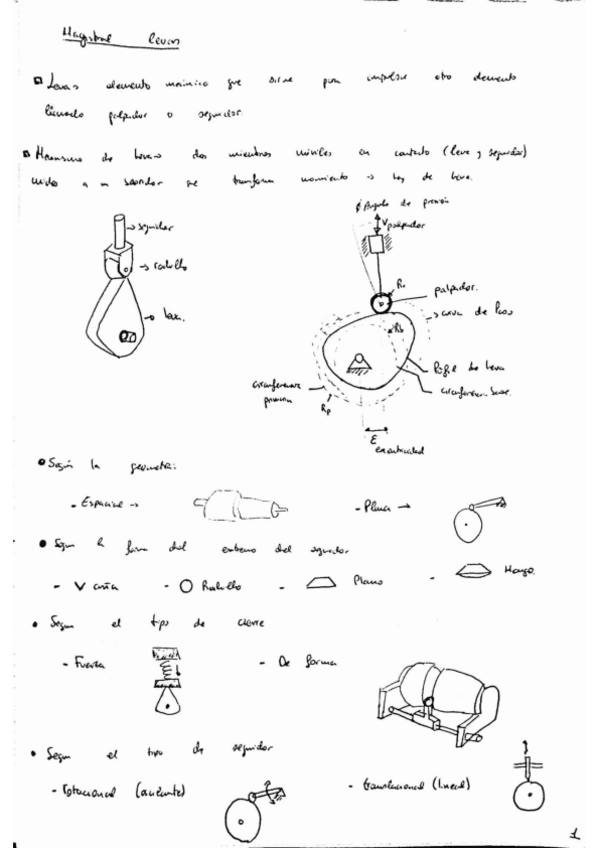 Magistral levas
Levas elemento mecánico que sirve para impulsar otro elemento
llamado palpador o seguidor.
Mecanismo de leva → dos miembros móviles en contacto (leva y seguidor)
unidos a un que transforma movimiento → ley de leva.
→ seguidor
→ rodillo
→ leva.
ϕ Ángulo de presión
V palpador
Rr
palpador.
→ curva de Paso
Rb
Perfil de leva
circunferencia base.
circunferencia
primaria
Rp
E
excentricidad
Según la geometría:
- Espacial →
- Plana →
Según la forma del extremo del seguidor
- V cuña - Rodillo - Plano - Hongo.
Según el tipo de cierre
- Fuerza - De forma
Según el tipo de seguidor
- rotacional (oscilante) - translacional (lineal)
1